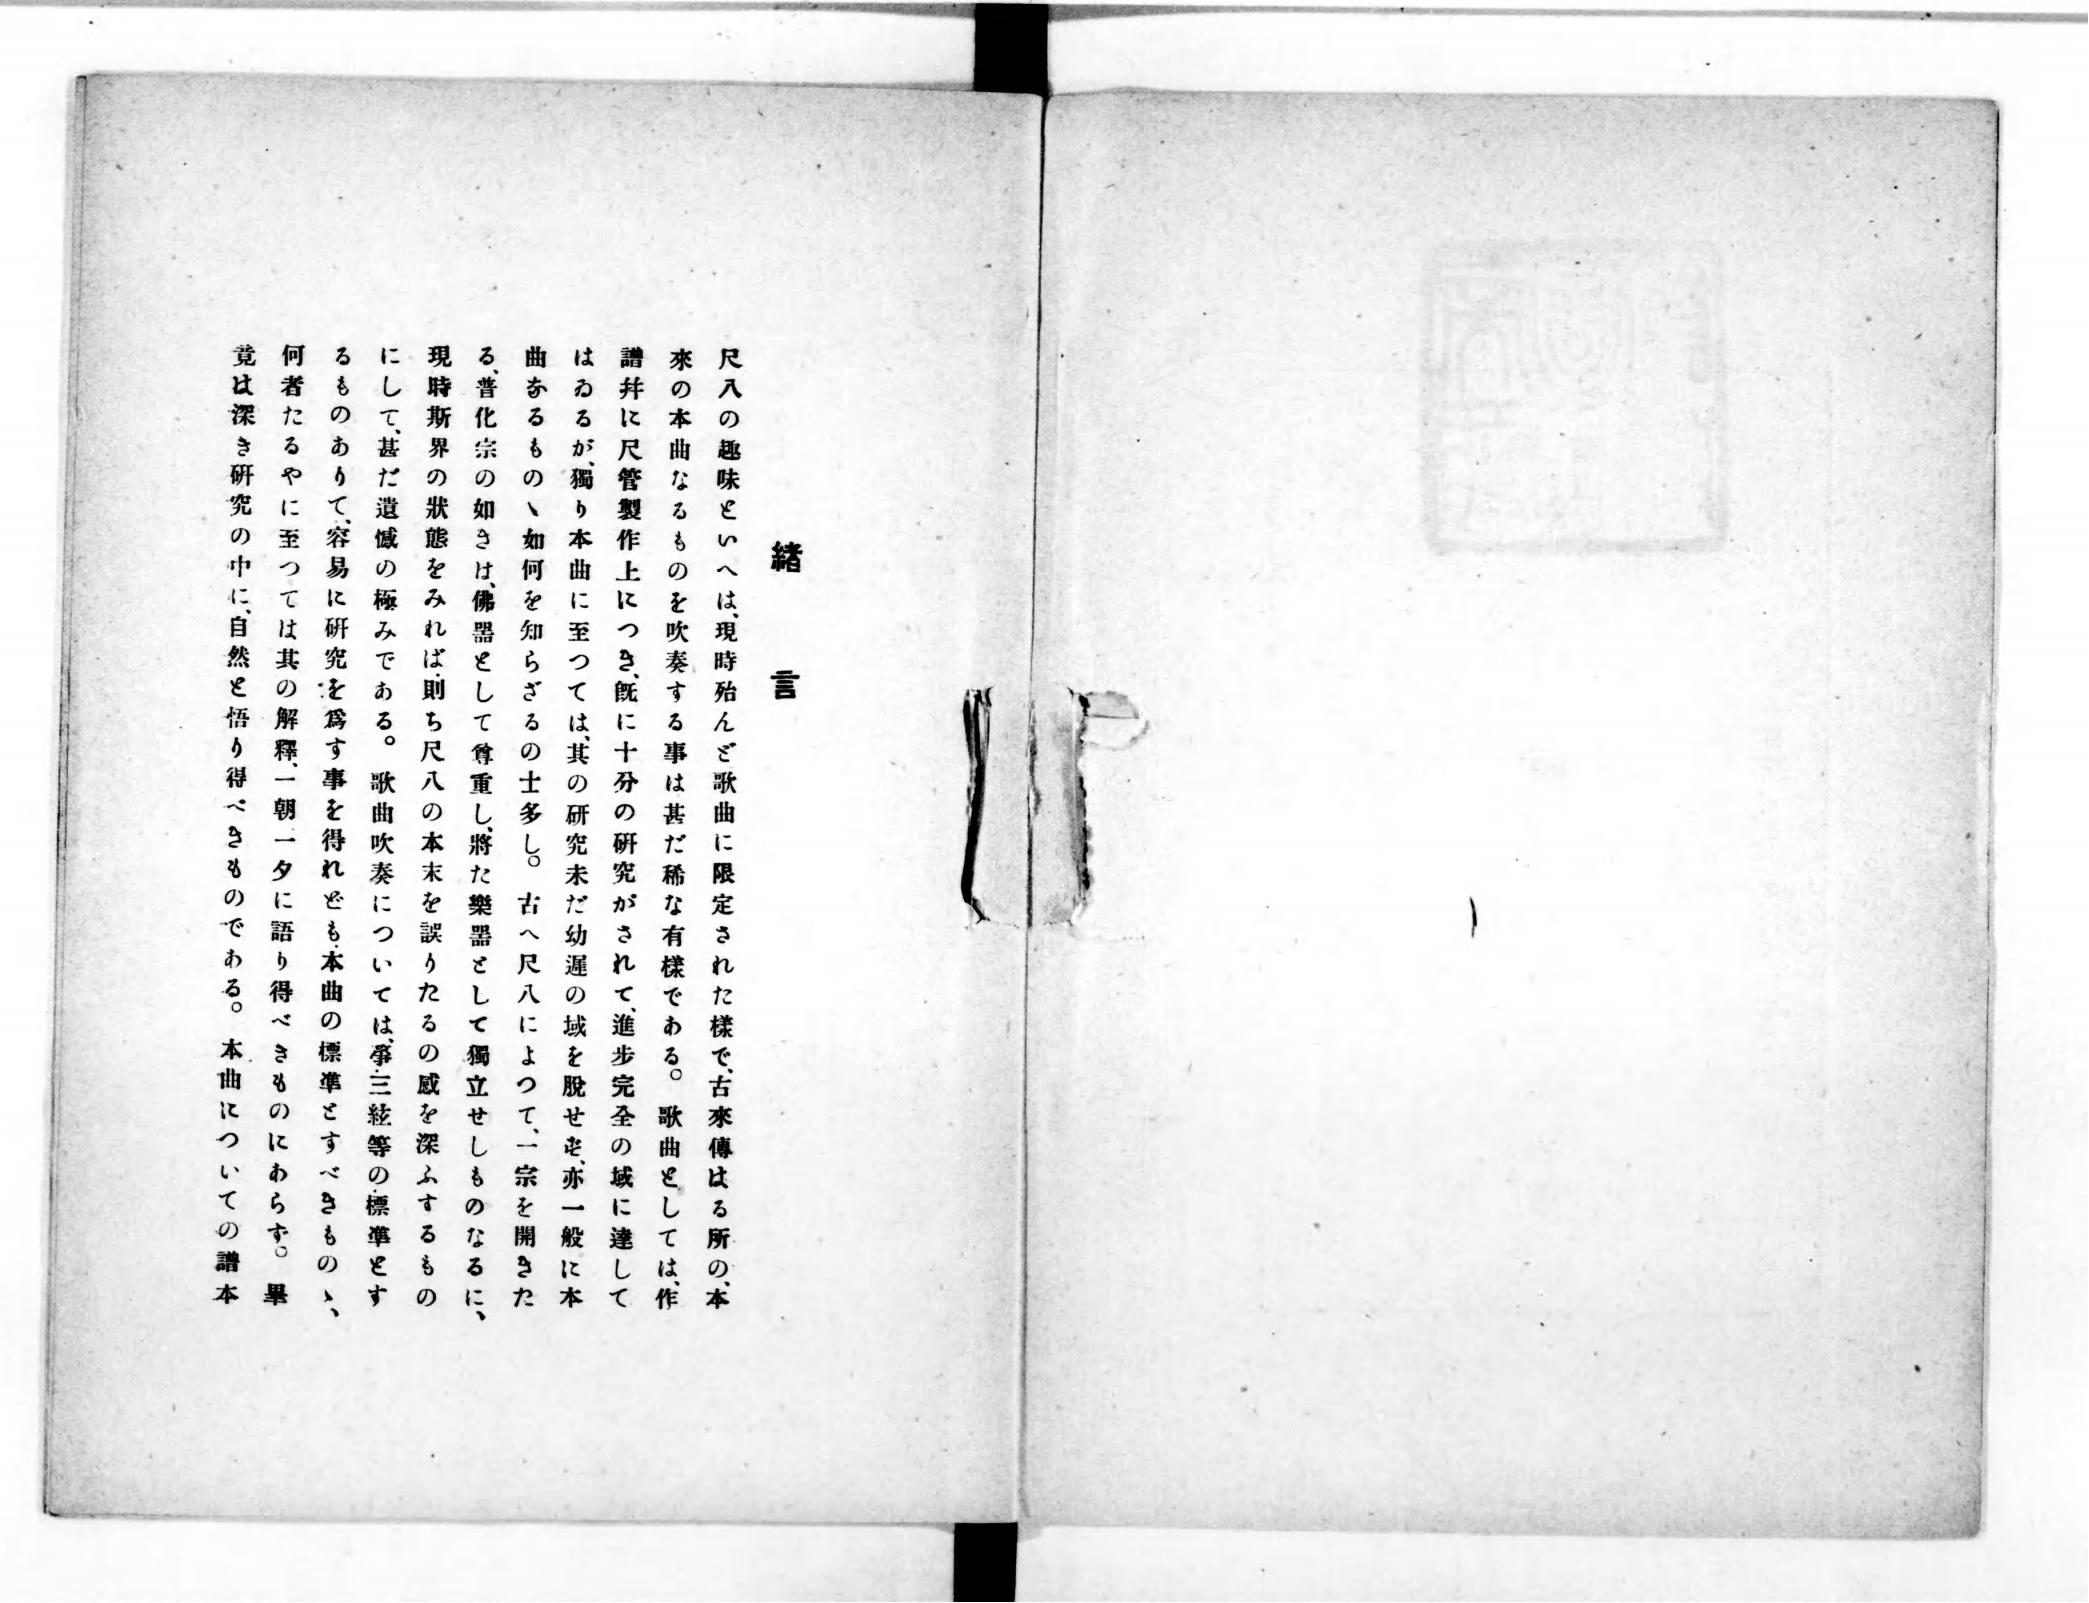 緒言
尺八の趣味といへは、現時殆んど歌曲に限定された樣で、古來傳はる所の、本
來の本曲なるものを吹奏する事は甚だ稀な有樣である。歌曲としては、作
譜幷に尺管製作上につき、既に十分の硏究がされて、進步完全の域に達して
はゐるが、獨り本曲に至つては、其の硏究未だ幼遲の域を脫せず、亦一般に本
曲なるものゝ如何を知らざるの士多し。古へ尺八によつて、一宗を開きた
る、普化宗の如きは、佛器として尊重し、將た樂器として獨立せしものなるに、
現時斯界の狀態をみれば、則ち尺八の本末を誤りたるの感を深ふするもの
にして、甚だ遺憾の極みである。歌曲吹奏については、箏、三絃等の標準とす
るものありて、容易に硏究を爲す事を得れども、本曲の標準とすべきものゝ、
何者たるやに至つては其の解釋、一朝一夕に語り得べきものにあらず。畢
竟は深き硏究の中に、自然と悟り得べきものである。本曲についての譜本